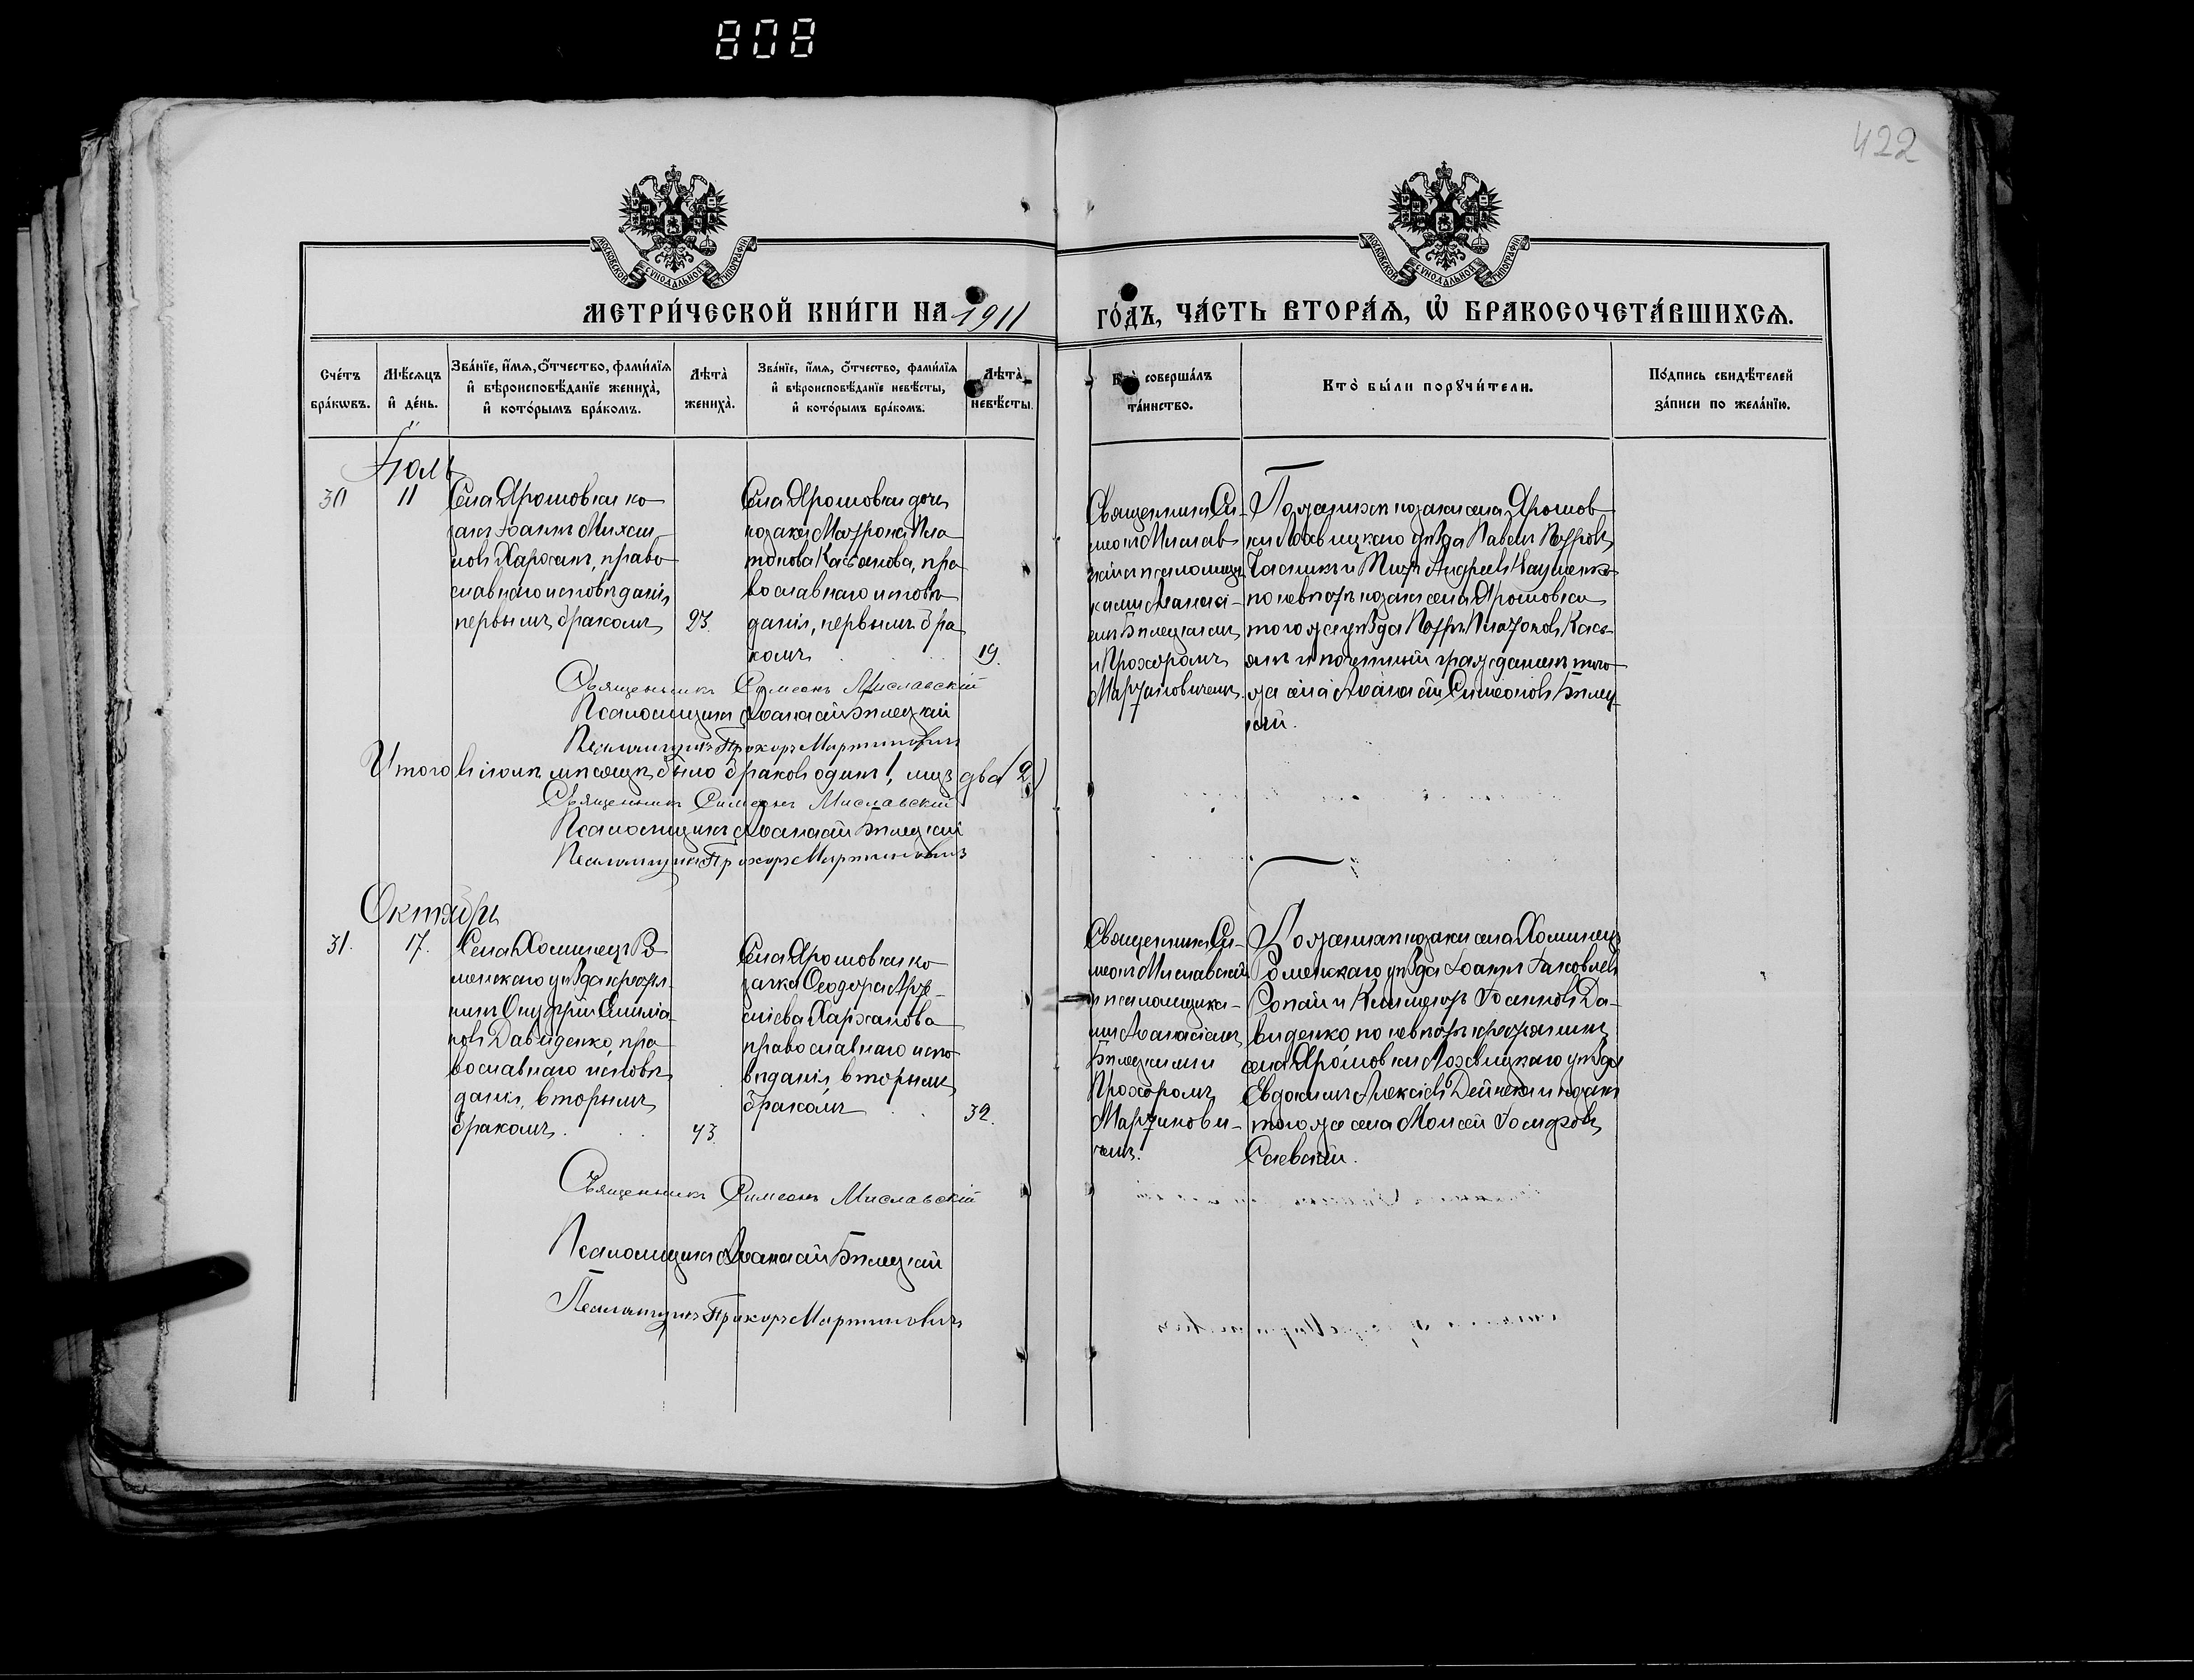 808
422
МОСКОВСКОЙ СУНОДАЛЬНОЙ ТИПОГРАФІИ
МОСКОВСКОЙ СУНОДАЛЬНОЙ ТИПОГРАФІИ
МЕТРИ́ЧЕСКОЙ КНИ́ГИ НА 1911 ГО́ДЪ, ЧА́СТЬ ВТОРА́Я, Ѡ БРАКОСОЧЕТА́ВШИХСЯ.
Сче́тъ бра́кѡвъ.
Мѣ́сяцъ и де́нь.
Зва́нїе, и́мя, ѻ́тчество, фами́лїя и вѣроисповѣ́данїе жениха̀, и кото́рымъ бра́комъ.
Лѣта̀ жениха̀.
Зва́нїе, и́мя, ѻ́тчество, фами́лїя и вѣроисповѣ́данїе невѣ́сты, и кото́рымъ бра́комъ.
Лѣта̀ невѣ́сты.
Кто̀ соверша́лъ та́инство.
Кто̀ бы́ли порꙋчи́тели.
По́дпись свидѣ́телей за́писи по жела́нїю.
Іюль
30
11
Села Ярошовки ко-
закъ Іоаннъ Михаи
ловъ Харханъ, право-
славнаго исповѣданія,
первымъ бракомъ,
23.
Села Ярошовки дочь
козака Матрона Пла-
тонова Касьянова, пра
вославнаго исповѣ-
данія, первымъ бра
комъ
19.
Священникъ Си-
меонъ Мислав
скій съ псаломщи
ками Аѳанасі-
емъ Билецкимъ
и Прохоромъ
Мартиновичемъ.
По женихѣ козаки села Ярошов
ки Лохвицкаго уѣзда Павелъ Петровъ
и Андрей Науменко
по невѣстѣ козаки села Ярошовки
того же уѣзда Петръ Платоновъ Кась-
янъ и почетный гражданинъ того
же села Аѳанасій Симеоновъ Билец-
кій.
Священникъ Симеонъ Миславскій
Псаломщикъ Аѳанасій Билецкій
Псаломщикъ Прохоръ Мартиновичъ
Итого въ іюлѣ мѣсяцѣ было браковъ одинъ 1, лицъ два (2)
Священникъ Симеонъ Миславскій
Псаломщикъ Аѳанасій Билецкій
Псаломщикъ Прохоръ Мартиновичъ
Октябрь
31.
17.
Села Хоминецъ Ро-
менскаго уѣзда крестья-
нинъ Онуфрій
Давиденко, пра-
вославнаго исповѣ
данія, вторымъ
бракомъ.
43.
Села Ярошовки ко
зачка Ѳеодора
Харханова
православнаго испо
вѣданія, вторымъ
бракомъ
32.
Священникъ Си-
меонъ Миславскій
съ псаломщика-
ми Аѳанасіемъ
Билецкимъ и
Прохоромъ
Мартинови-
чемъ.
По женихѣ козаки села Хоминецъ
Роменскаго уѣзда Іоаннъ Іаковлевъ
Сопай и Іоанновъ Да-
виденко, по невѣстѣ крестьянинъ
села Ярошовки Лохвицкаго уѣзда
Евдокимъ Алексіевъ Дейнека и козакъ
того же села Моисей Іосифовъ
Саевскій.
Священникъ Симеонъ Миславскій
Псаломщикъ Аѳанасій Билецкій
Псаломщикъ Прохоръ Мартиновичъ